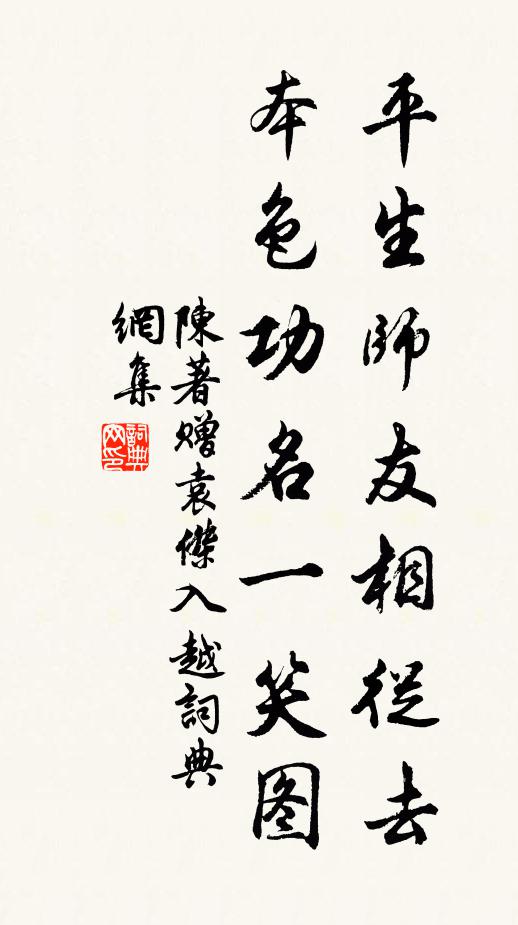 平生師友相從去
本色功名一笑图
陳著贈袁傑入越詞典
網集
詞典
网印